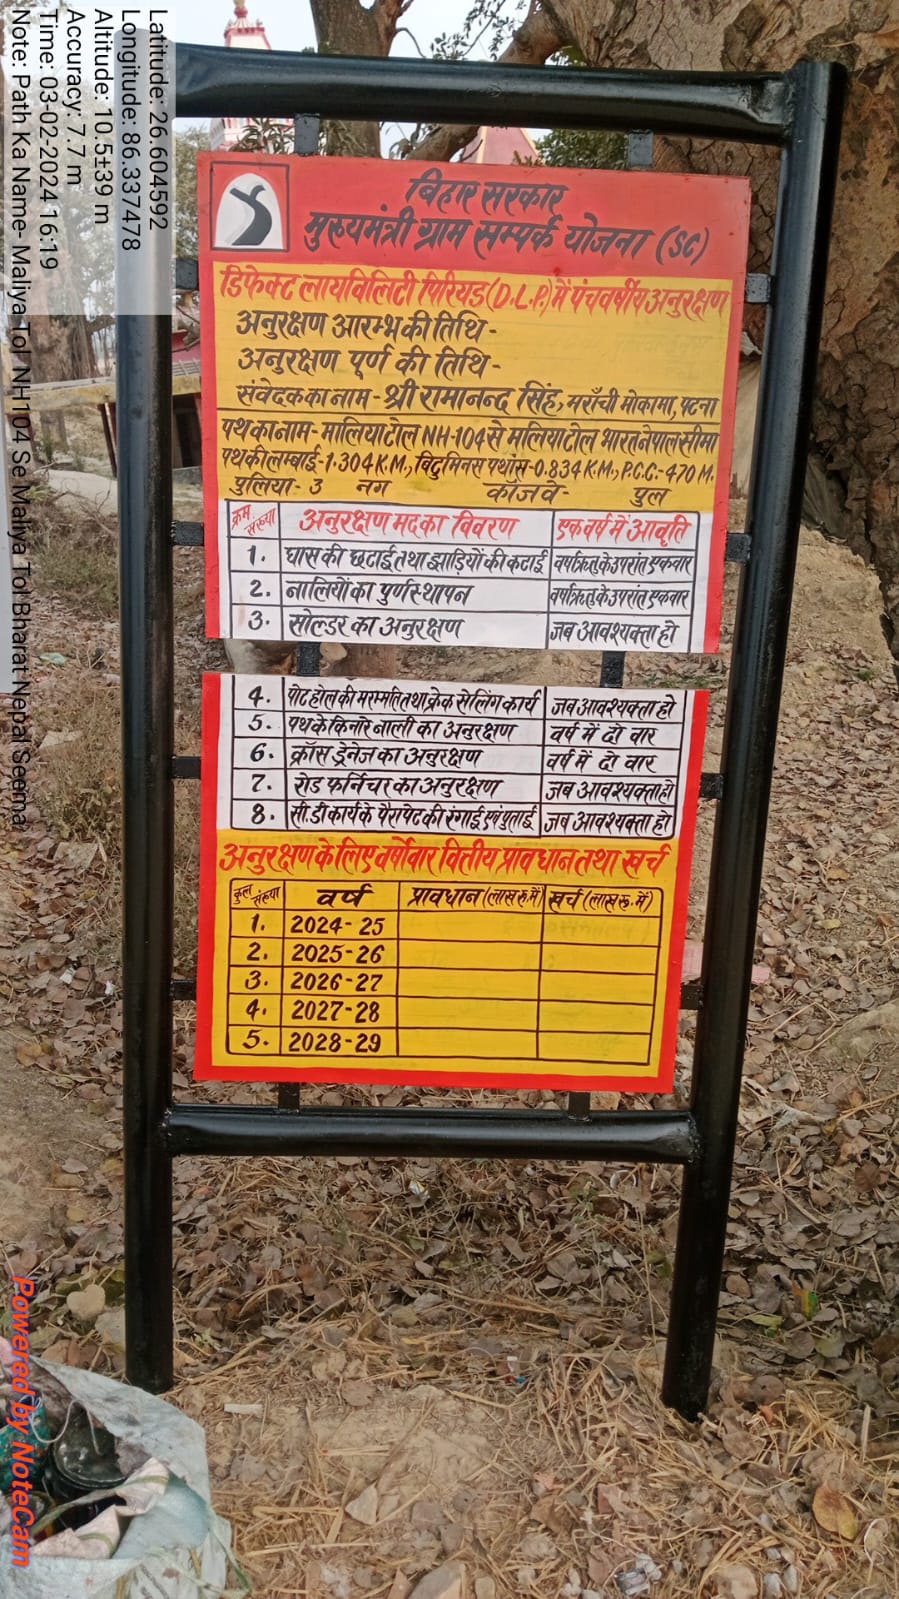 Latitude: 26.604592
Longitude: 86.337478
Altitude: 10.5±39 m
Accuracy: 7.7 m
Time: 03-02-2024 16:19
Note: Path Ka Name- Maliya Tol NH104 Se Maliya Tol Bharat Nepal Seema
बिहार सरकार
मुख्यमंत्री ग्राम सम्पर्क योजना (SC)
डिफेक्ट लायविलिटी पिरियड (D.L.P.) में पंचवर्षीय अनुरक्षण
अनुरक्षण आरम्भ की तिथि -
अनुरक्षण पूर्ण की तिथि -
संवेदक का नाम - श्री रामानन्द सिंह, मराँची मोकामा, पटना
पथ का नाम - मालियाटोल NH-104 से मलियाटोल भारत नेपाल सीमा
पथ की लम्बाई - 1.304 K.M., बिटुमिनस पथांस - 0.834 K.M., P.C.C - 470 M.
पुलिया - 3 नग कॉजवे - पुल
क्रम संख्या अनुरक्षण मद का विवरण एक वर्ष में आवृति
1. घास की छटाई तथा झाड़ियों की कटाई वर्षाऋतु के उपरांत एकवार
2. नालियों का पुर्णस्थापन वर्षाऋतु के उपरांत एकवार
3. सोल्डर का अनुरक्षण जब आवश्यक्ता हो
4. पोट होल की मरम्मति तथा क्रेक सेलिंग कार्य जब आवश्यक्ता हो
5. पथ के किनारे नाली का अनुरक्षण वर्ष में दो वार
6. क्रॉस ड्रेनेज का अनुरक्षण वर्ष में दो वार
7. रोड फर्निचर का अनुरक्षण जब आवश्यक्ता हो
8. सी.डी कार्य के पैरापेट की रंगाई एवं पुताई जब आवश्यक्ता हो
अनुरक्षण के लिए वर्षोवार वित्तीय प्रावधान तथा खर्च
कुल संख्या वर्ष प्रावधान (लाख रु. में) खर्च (लाख रू. में)
1. 2024-25
2. 2025-26
3. 2026-27
4. 2027-28
5. 2028-29
Powered by NoteCam